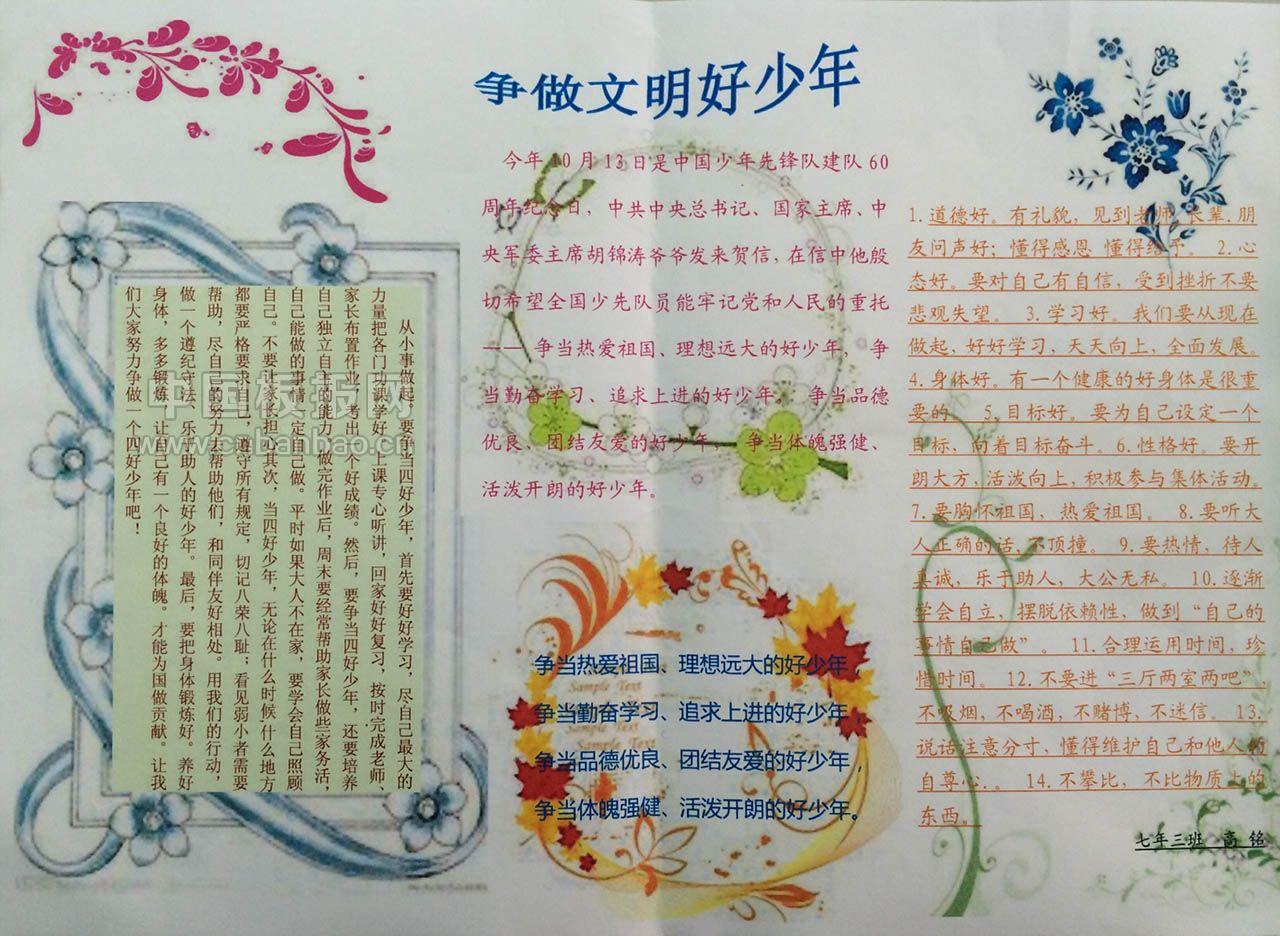 争做文明好少年
今年10月13日是中国少年先锋队建队60
周年纪念日，中共中央总书记、国家主席、中
央军委主席胡锦涛爷爷发来贺信，在信中他殷
切希望全国少先队员能牢记党和人民的重托
—— 争当热爱祖国、理想远大的好少年， 争
当勤奋学习、追求上进的好少年， 争当品德
优良、团结友爱的好少年， 争当体魄强健、
活泼开朗的好少年。
从小事做起，要争当四好少年，首先要好好学习，尽自己最大的
力量把各门功课学好，上课专心听讲，回家好好复习，按时完成老师、
家长布置作业，考出一个好成绩。然后，要争当四好少年，还要培养
自己独立自主的能力，做完作业后，周末要经常帮助家长做些家务活，
自己能做的事情一定自己做。平时如果大人不在家，要学会自己照顾
自己。不要让家长担心其次，当四好少年，无论在什么时候什么地方
都要严格要求自己，遵守所有规定，切记八荣八耻；看见弱小者需要
帮助，尽自己的努力去帮助他们，和同伴友好相处。用我们的行动，
做一个遵纪守法、乐于助人的好少年。最后，要把身体锻炼好。养好
身体，多多锻炼，让自己有一个良好的体魄。才能为国做贡献。让我
们大家努力争做一个四好少年吧！
争当热爱祖国、理想远大的好少年，
争当勤奋学习、追求上进的好少年，
争当品德优良、团结友爱的好少年，
争当体魄强健、活泼开朗的好少年。
Sample Text
Sample Text
1.道德好。有礼貌，见到老师 长辈.朋
友问声好；懂得感恩 懂得给予。 2.心
态好。要对自己有自信，受到挫折不要
悲观失望。 3.学习好。我们要从现在
做起，好好学习，天天向上，全面发展。
4.身体好。有一个健康的好身体是很重
要的。 5.目标好。要为自己设定一个
目标，向着目标奋斗。6.性格好。要开
朗大方，活泼向上，积极参与集体活动。
7.要胸怀祖国，热爱祖国。 8.要听大
人正确的话,不顶撞。 9.要热情，待人
真诚，乐于助人，大公无私。 10.逐渐
学会自立，摆脱依赖性，做到“自己的
事情自己做”。 11.合理运用时间，珍
惜时间。 12.不要进“三厅两室两吧”，
不吸烟，不喝酒，不赌博，不迷信。 13.
说话注意分寸，懂得维护自己和他人的
自尊心.。 14.不攀比，不比物质上的
东西。
七年三班 高 铭
中国板报网
www.cnbanbao.cn